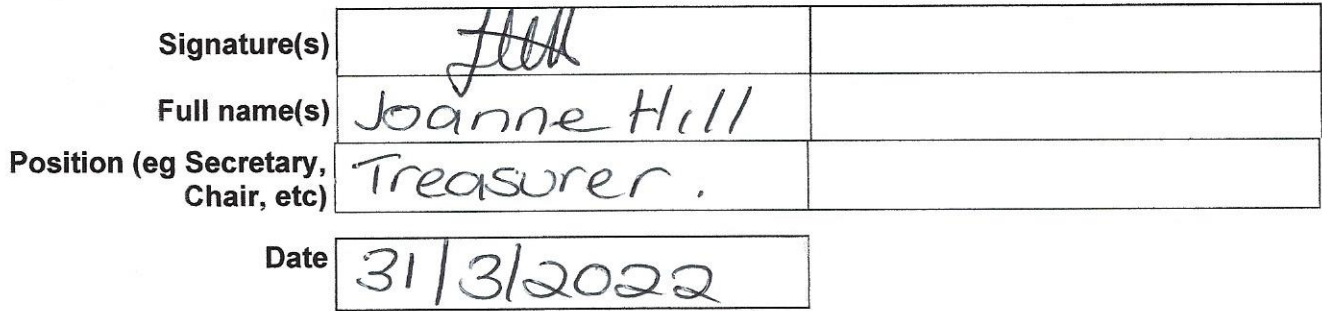 Signature(s)
Full name(s) Joanne Hill
Position (eg Secretary, Treasurer.
Chair, etc)
Date 31/3/2022